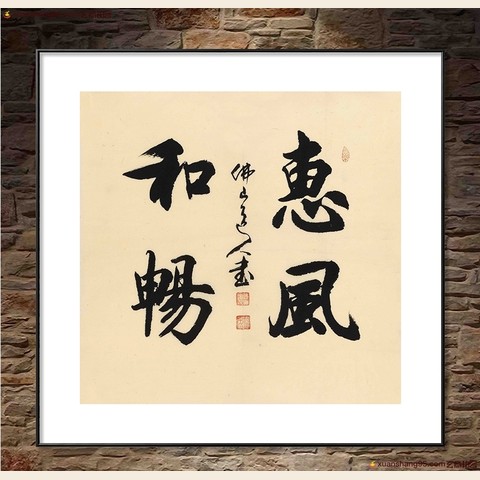 惠風
和暢
佛山道人書